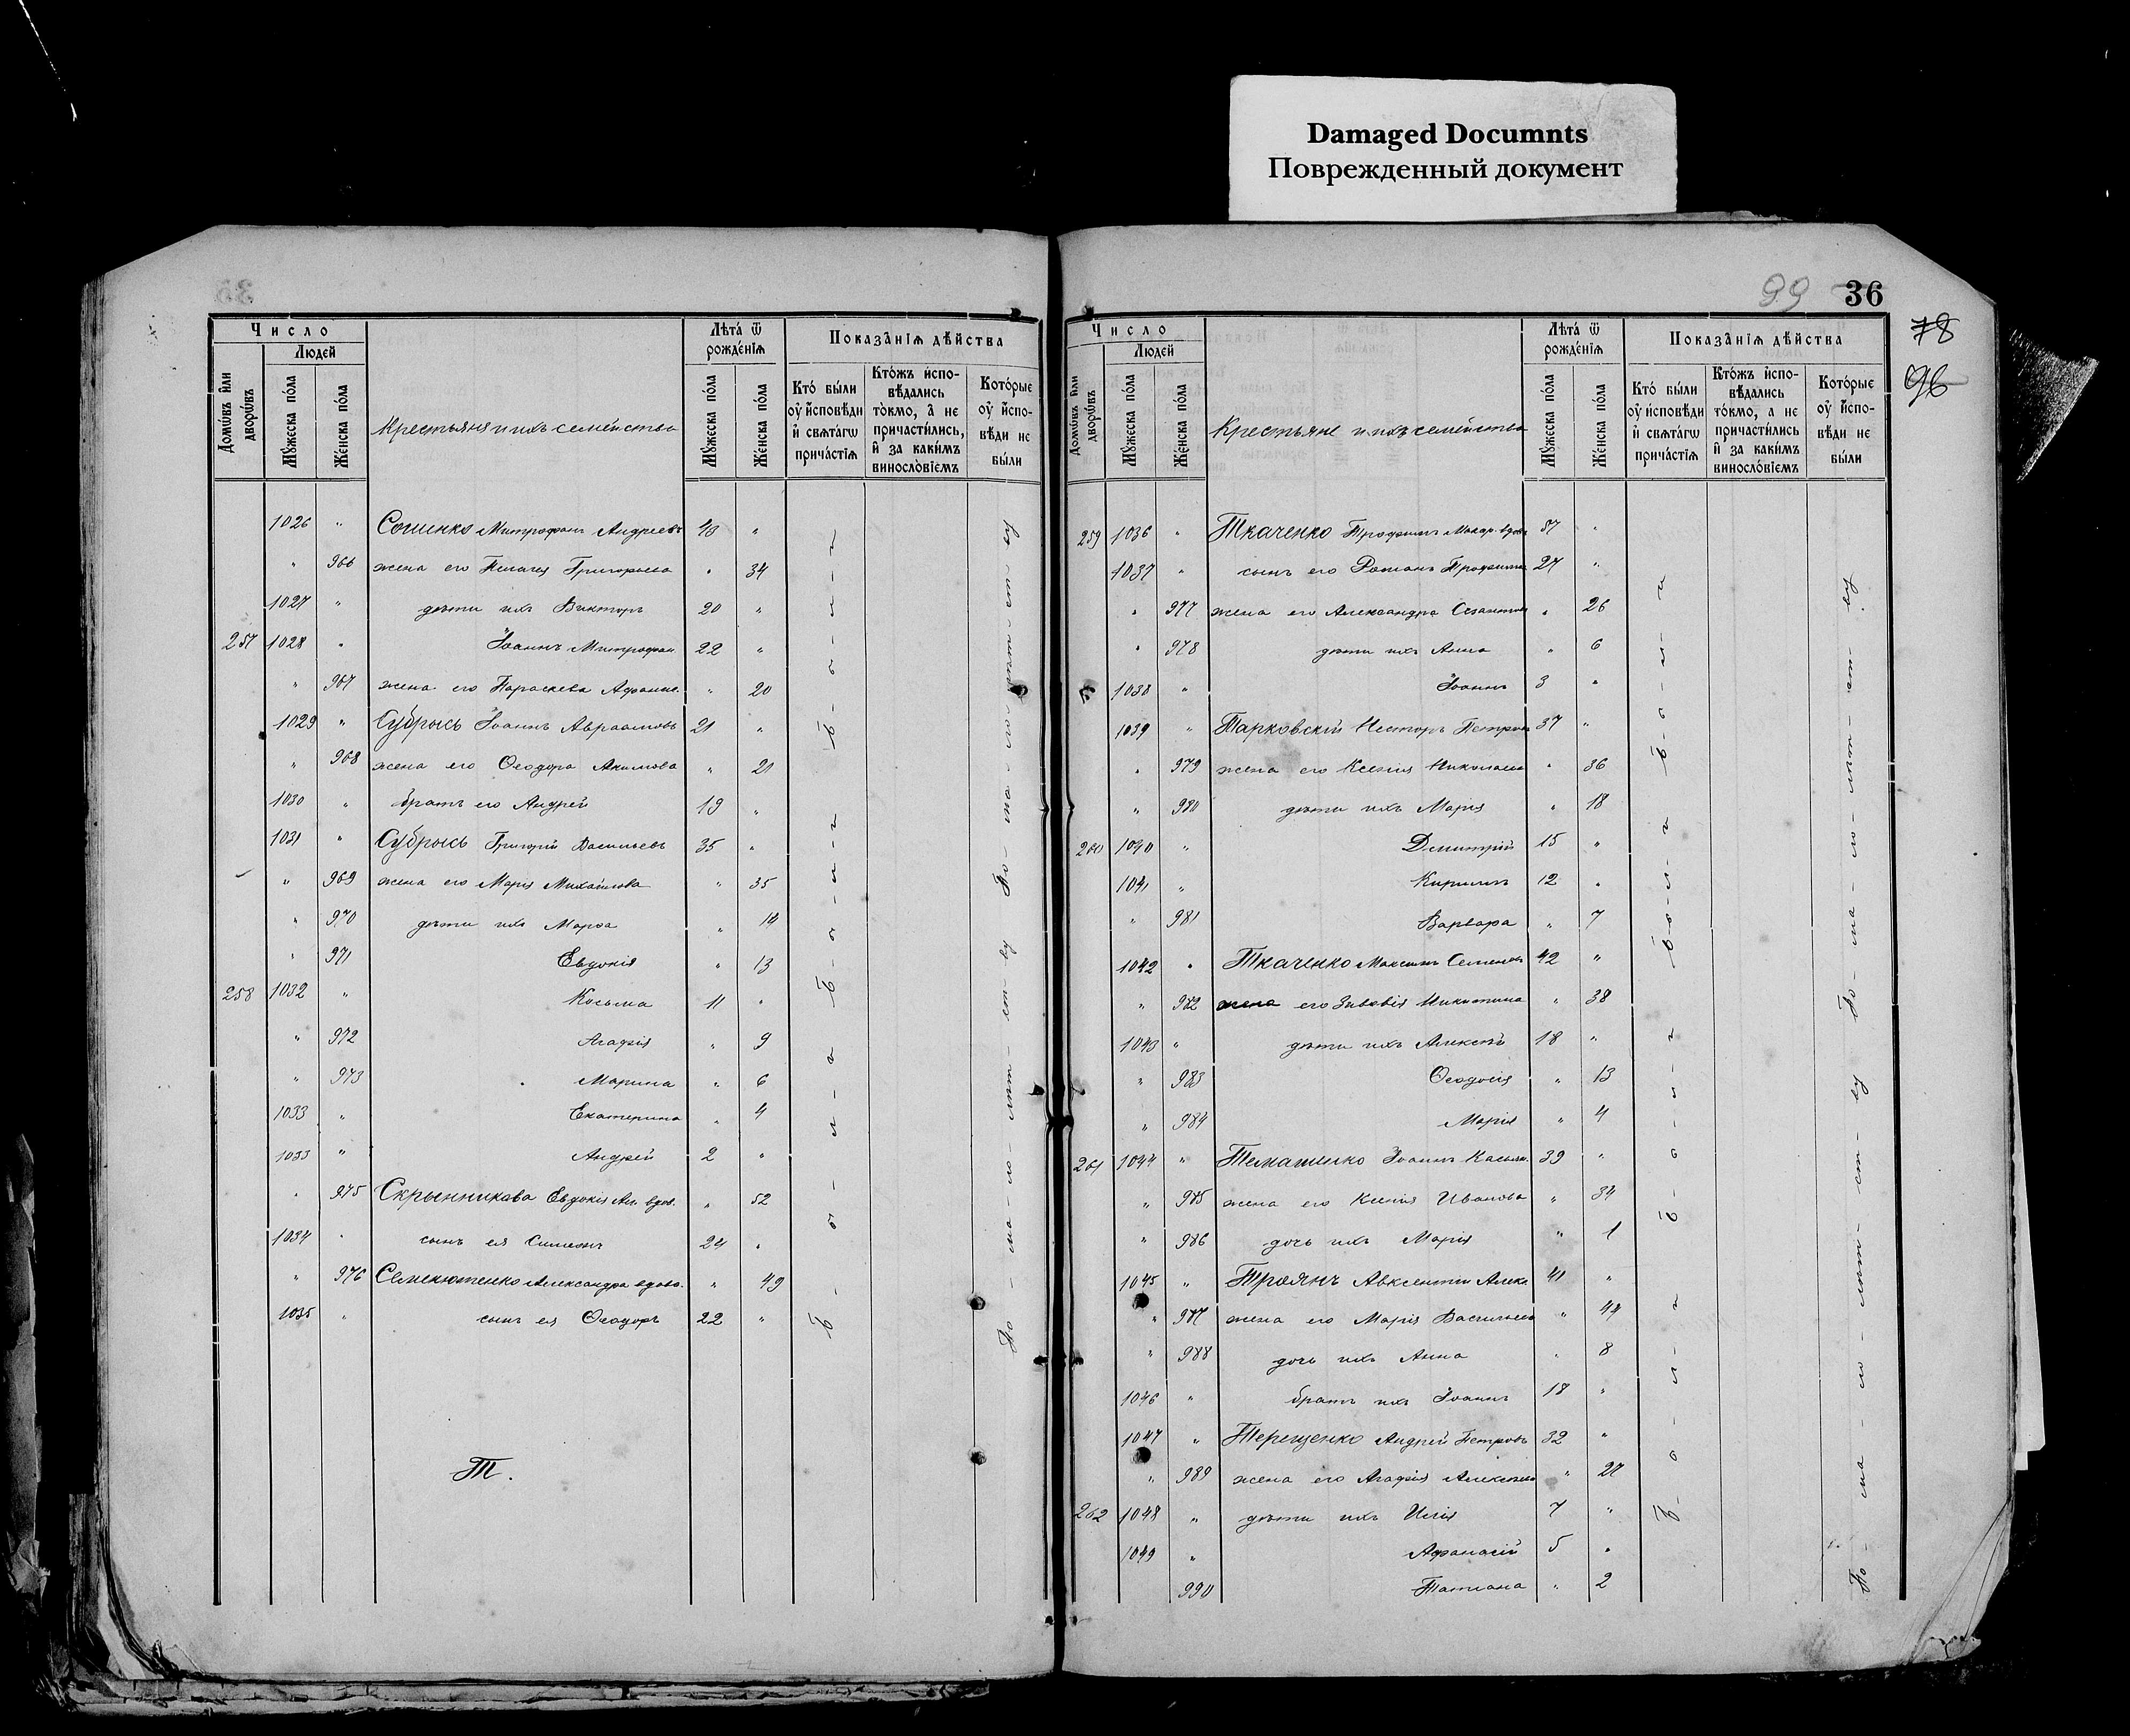 Damaged Documnts
Поврежденный документ
Число
Людей
Домѡвъ и҆лѝ дворѡ́въ
Мꙋ́жеска по́ла
Же́нска по́ла
Крестьяне и ихъ семейства
Лѣта̀ ѿ рожде́нїѧ
Мꙋ́жеска по́ла
Же́нска по́ла
Показа̑нїѧ дѣ́йства
Кто̀ бы́ли ѹ҆ и҆сповѣди и҆ свѧта́гѡ прича́стїѧ
Кто́жъ и҆спо-вѣдались то́кмо, а҆ не причасти́лись, и҆ за каки́мъ винословїемъ
Кото́рые ѹ҆ и҆спо-вѣди не бы́ли
1026 " Сошенко Митрофанъ Андреевъ 43 "
" 966 жена его Пелагея Григорьева " 34
1027 " дѣти ихъ Викторъ 20 "
257 1028 " Іоаннъ Митрофан. 22 "
" 967 жена его Параскева " 20
1029 " Субрысь Іоаннъ Авраамовъ 21 "
" 968 жена его Ѳеодора Акимова " 21
1030 " братъ его Андрей 19 "
1031 " Субрысь Григорій Васильевъ 35 "
" 969 жена его Марія Михайлова " 35
" 970 дѣти ихъ Марѳа " 14
" 971 Евдокія " 13
258 1032 " Косьма 11 "
" 972 Агафія " 9
" 973 Марина " 6
1033 " Екатерина " 4
1033 " Андрей 2 "
" 975 Скрынникова Евдокія Ан. вдов. " 52
1034 " сынъ ея Симеонъ 24 "
" 976 Семекютенко Александра вдова. " 49
1035 " сынъ ея Ѳеодоръ 22 "
Т.
б - ы - л - и
б - ы - л - и
б - ы - л - и
По - ма - ло - лѣт - ст - ву
По - ма - ло - лѣт - ст - ву
99 36
78
96
Число
Людей
Домѡвъ и҆лѝ дворѡ́въ
Мꙋ́жеска по́ла
Же́нска по́ла
Крестьяне и ихъ семейства
Лѣта̀ ѿ рожде́нїѧ
Мꙋ́жеска по́ла
Же́нска по́ла
Показа̑нїѧ дѣ́йства
Кто̀ бы́ли ѹ҆ и҆сповѣди и҆ свѧта́гѡ прича́стїѧ
Кто́жъ и҆спо-вѣдались то́кмо, а не причасти́лись и҆ за каки́мъ винословїемъ
Кото́рые ѹ҆ и҆спо-вѣди не бы́ли
259 1036 " Ткаченко Трофимъ Макар. вдов. 57 "
1037 " сынъ его Романъ Трофимов 27 "
" 977 жена его Александра " 26
" 978 дѣти ихъ Анна " 6
1038 " Іоаннъ 3 "
1039 " Тарковскій Несторъ Петров 37 "
" 979 жена его Ксенія Николаева " 36
" 980 дѣти ихъ Марія " 18
260 1040 " Димитрій 15 "
1041 " Кириллъ 12 "
" 981 Варвара " 7
1042 " Ткаченко Максимъ Семеновъ 42 "
" 982 жена его Зиновія Никитина " 38
1043 " дѣти ихъ Алексѣй 18 "
" 983 Ѳеодосія " 13
" 984 Марія " 4
261 1044 " Темашенко Іоаннъ Касьян. 39 "
" 985 жена его Ксенія Иванова " 34
" 986 дочь ихъ Марія " 1
1045 " Троянъ Авксентій Алекс 41 "
" 987 жена его Марія Васильева " 44
" 988 дочь ихъ Анна " 8
1046 " братъ ихъ Іоаннъ 18 "
1047 " Терещенко Андрей Петровъ 32 "
" 989 жена его Агафія Алексѣева " 27
262 1048 " дѣти ихъ Илія 7 "
1049 " Афанасій 5 "
990 Татіана " 2
б - ы - л - и
б - ы - л - и
б - ы - л - и
б - ы - л - и
По - ма - ло - лѣт - ст - ву
По - ма - ло - лѣт - ст - ву